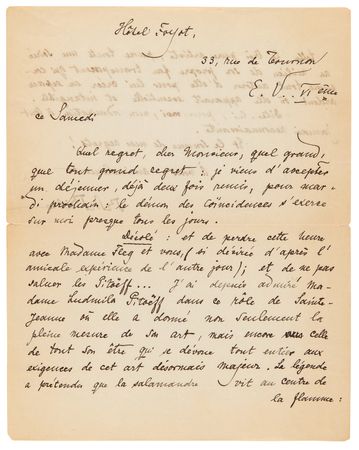 Hôtel Foyot,
33, rue de Tournon
E. V.. VIème
ce Samedi
Quel regret, cher Monsieur, quel grand,
quel tout grand regret : je viens d'accepter
un déjeuner, déjà deux fois remis, pour mar-
di prochain : le démon des Coïncidences s'exerce
sur moi presque tous les jours.
Désolé : et de perdre cette heure
avec Madame Fleg et vous, (si désirée d'après l'
amicale expérience de l'autre jour) ; et de ne pas
saluer les Pitoëff... J'ai depuis admiré Ma-
dame Ludmila Pitoëff dans ce rôle de Sainte-
Jeanne où elle a donné non seulement la
pleine mesure de son art, mais encore celle
de tout son être qui se dévoue tout entier aux
exigences de cet art désormais majeur. La légende
a prétendu que la salamandre vit au centre de
la flamme :